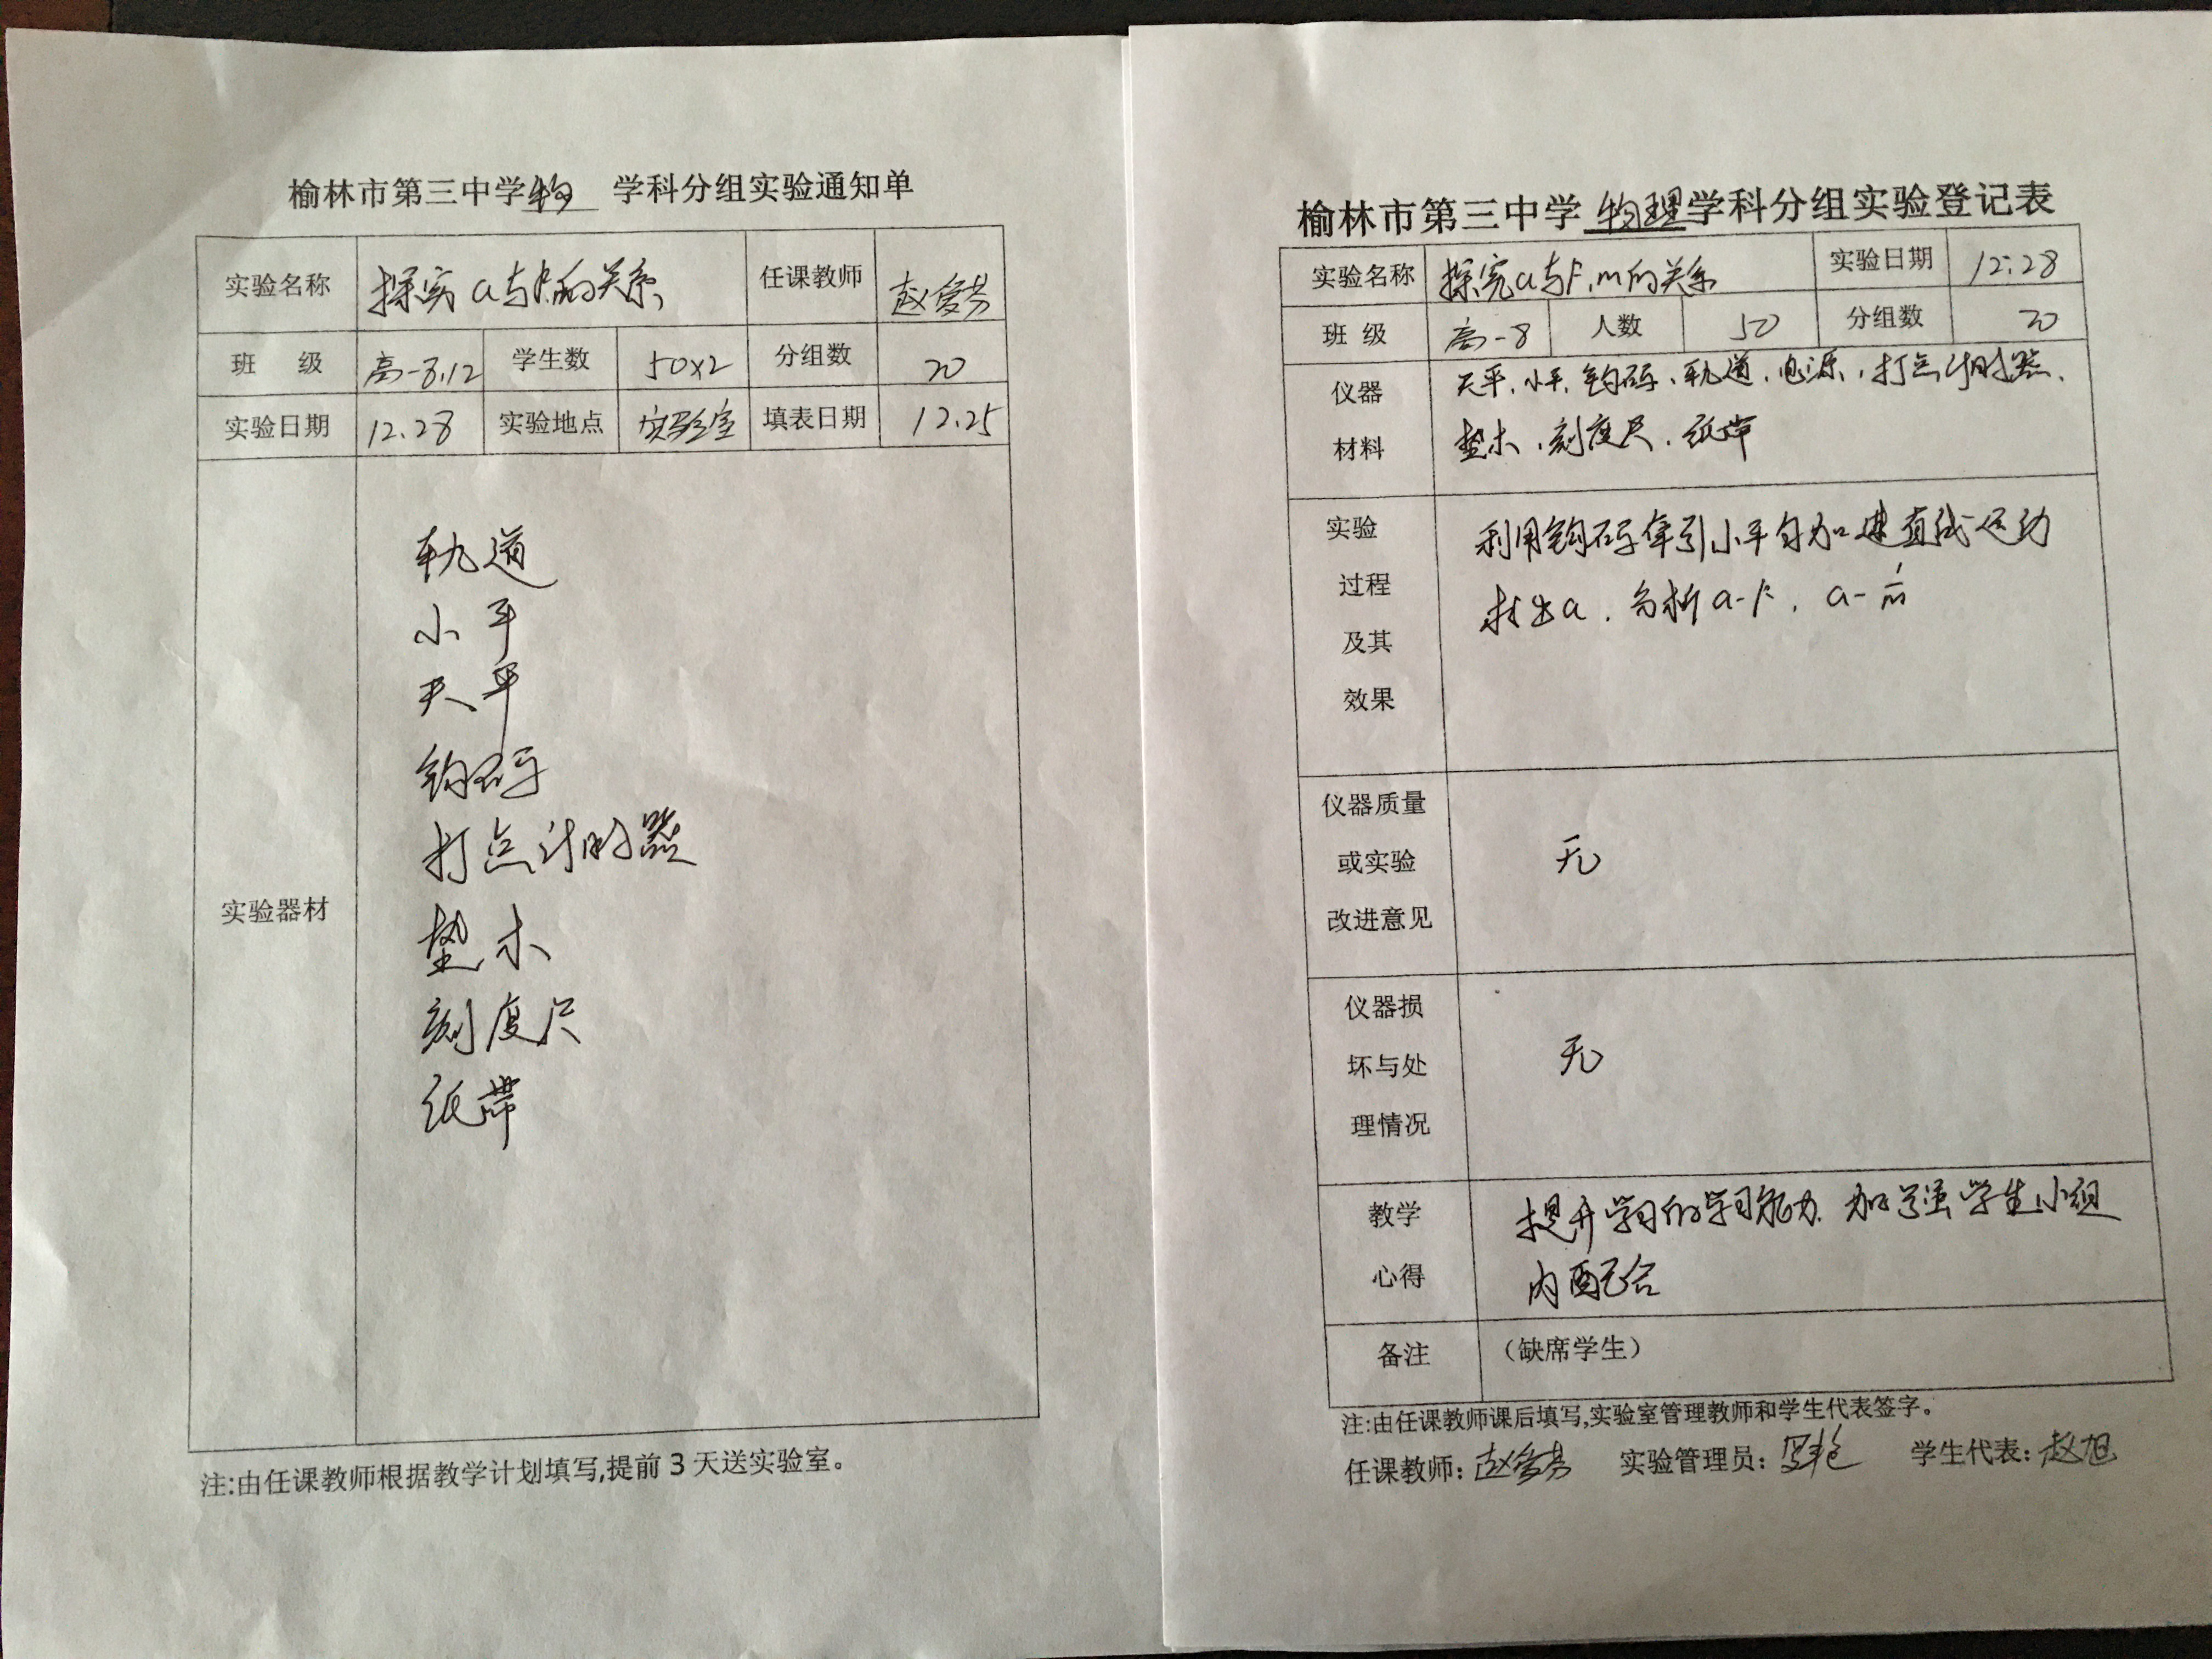 榆林市第三中学 物 学科分组实验通知单
实验名称 探究a与F.m的关系 任课教师 赵爱芬
班 级 高一8.12 学生数 50×2 分组数 20
实验日期 12.28 实验地点 实验室 填表日期 12.25
实验器材
轨道
小车
天平
钩码
打点计时器
垫木
刻度尺
纸带
注:由任课教师根据教学计划填写,提前3天送实验室。
榆林市第三中学 物理 学科分组实验登记表
实验名称 探究a与F.m的关系 实验日期 12.28
班 级 高一8 人数 50 分组数 20
仪器 天平、小车、钩码、轨道、电源、打点计时器、
材料 垫木、刻度尺、纸带
实验 利用钩码牵引小车匀加速直线运动
过程 求出a、分析a-F、a-1/m
及其
效果
仪器质量
或实验 无
改进意见
仪器损
坏与处 无
理情况
教学 提升学习的学习能力、加强学生小组
心得 内配合
备注 (缺席学生)
注:由任课教师课后填写,实验室管理教师和学生代表签字。
任课教师: 赵爱芬 实验管理员: 学生代表: 赵旭